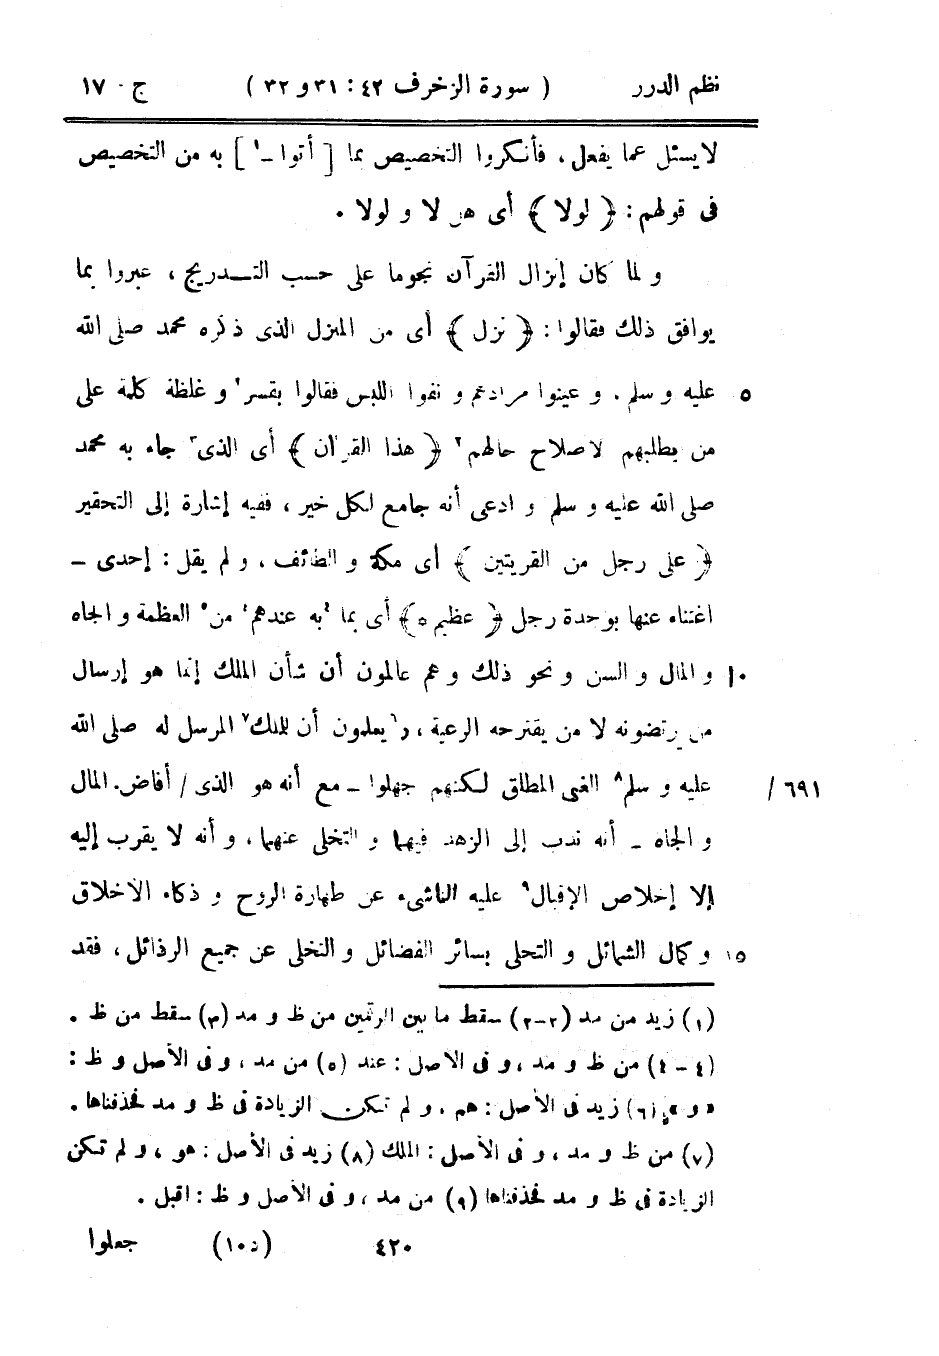 نظم الدرر ( سورة الزخرف ٤٢ : ٣١ و ٣٢ ) ج - ١٧
لا يسئل عما يفعل ، فأنكروا التخصيص بما [ أتوا - ١ ] به من التخصيص
فى قولهم : ﴿ لولا ﴾ أى هل لا و لولا .
و لما كان إنزال القرآن نجوما على حسب التدريج ، عبروا بما
يوافق ذلك فقالوا : ﴿ نزل ﴾ أى من المنزل الذى ذكره محمد صلى الله
عليه و سلم . و عينوا مرادهم و نفوا اللبس فقالوا بقسر ٢ و غلظة كلمة على ٥
من يطلبهم لاصلاح حالهم ٢ ﴿ هذا القرآن ﴾ أى الذى ٣ جاء به محمد
صلى الله عليه و سلم و ادعى أنه جامع لكل خير ، ففيه إشارة إلى التحقير
﴿ على رجل من القريتين ﴾ أى مكة و الطائف ، و لم يقل : إحدى -
اغتناء عنها بوحدة رجل ﴿ عظيم ٥ ﴾ أى بما ٤ به عندهم ٤ من ٥ العظمة و الجاه
و المال و السن و نحو ذلك و هم عالمون أن شأن الملك إنما هو إرسال ١٠
من يرتضونه لا من يقترحه الرعية ، و ٦ يعلمون أن للملك ٧ المرسل له صلى الله
عليه و سلم ٨ الغنى المطلق لكنهم جهلوا - مع أنه هو الذى / أفاض المال / ٦٩١
و الجاه - أنه ندب إلى الزهد فيهما و التخلى عنهما ، و أنه لا يقرب إليه
إلا إخلاص الإقبال ٩ عليه الناشىء عن طهارة الروح و ذكاء الاخلاق
و كمال الشمائل و التحلى بسائر الفضائل و التخلى عن جميع الرذائل ، فقد ١٥
(١) زيد من مد (٢-٢) سقط ما بين الرقمين من ظ و مد (٣) سقط من ظ .
(٤ - ٤) من ظ و مد ، و فى الأصل : عند (٥) من مد ، و فى الأصل و ظ :
« و » (٦) زيد فى الأصل : هم ، و لم تكن الزيادة فى ظ و مد فحذفناها .
(٧) من ظ و مد ، و فى الأصل : الملك (٨) زيد فى الأصل : هو ، و لم تكن
الزيادة فى ظ و مد فحذفناها (٩) من مد ، و فى الأصل و ظ : اقبل .
٤٢٠ (١٠٥) جعلوا